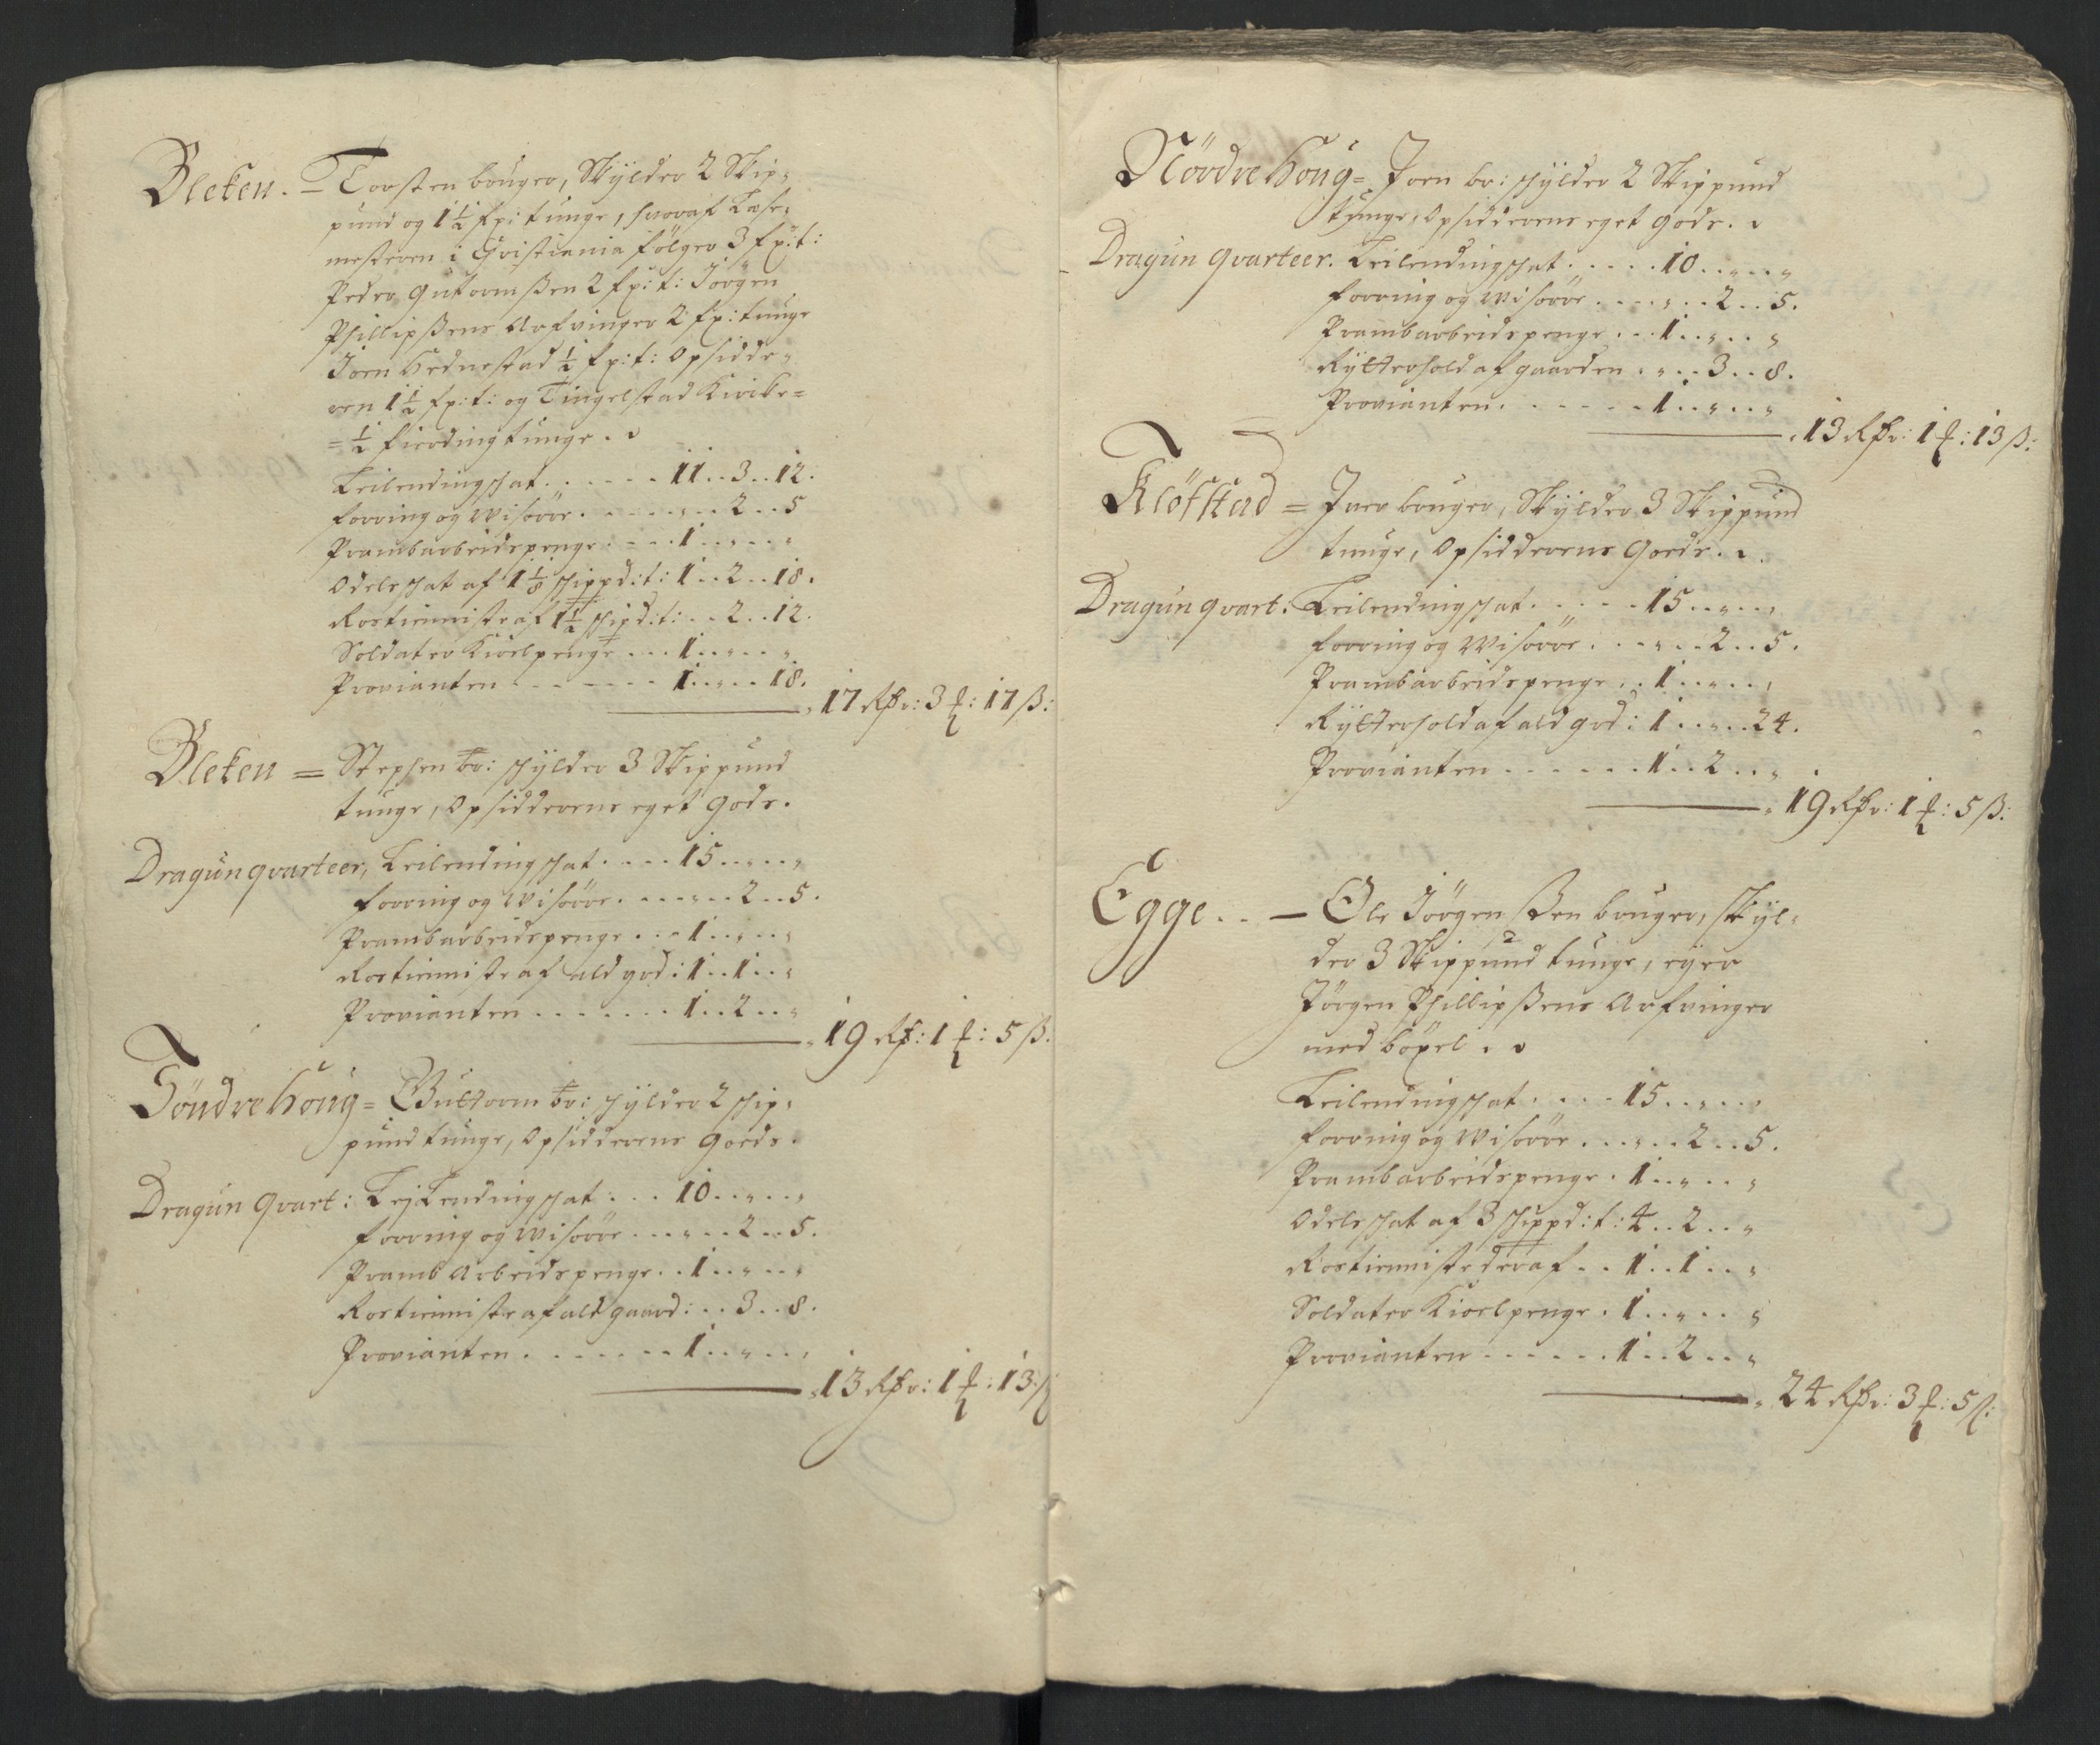 Bleken. = Torsten bruger, Skylder 2 Skip-
pund og 1½ fp: tunge, hvoraf Læse-
mesteren i Christiania følger 3 fp:t:
Peder Gutormßen 2 fp:t: Jörgen
Phillipßens Arfvinger 2 fp: tunge
Joen Hednestad ½ fp:t: Opsidde-
ren 1½ fp:t: og Tingelstad Kircke=
=½ fierdingtunge.
Leilendingschat . . . . . . 11 .. 3 .. 12.
Forring og Wisøre . . . . . „ .. 2 .. 5
Prambarbeidspenge . . . . 1 .. „ .. „
Odelsschat af 1⅛ schippd:t: 1 .. 2 .. 18.
Rostienniste af 1½ schipd:t: . . 2 .. 12.
Soldater Kioelpenge . . . 1 .. „ .. „
Provianten . . . . . . . 1 .. „ .. 18.
17 Rdr: 3 ℔: 17 ß:
Bleken = Stephen br: schylder 3 Skippund
tunge, Opsidderens eget Gods.
Dragunqvarteer, Leilendingschat . . . . 15 .. „ .. „
Forring og Wisøre . . . . „ .. 2 .. 5.
Prambarbeidspenge . . . 1 .. „ .. „
Rostienniste af ald grd: 1 .. 1 .. „
Provianten . . . . . . . 1 .. 2 .. „
19 Rd: 1 ℔: 5 ß:
Söndre Houg = Guttorm br: schylder 2 schip-
pund tunge, Opsidderens Goeds.
Dragun Qvart: Lejlendingschat . . . 10 .. „ .. „
Forring og Wisøre . . . „ .. 2 .. 5.
Pramb Arbeidspenge . . 1 .. „ .. „
Rostienniste af ald gaard: . . 3 .. 8.
Provianten . . . . . . . 1 .. „ .. „
13 Rdr: 1 ℔: 13 ß
Nördre Houg = Joen br: schylder 2 Skippund
tunge, Opsidderens eget Gods.
Dragun Qvarteer. Leilendingschat . . . . . 10 .. „ .. „
Forring og Wisøre . . . . „ .. 2 .. 5.
Prambarbeidspenge . . . 1 .. „ .. „
Rytterhold af gaarden . „ .. 3 .. 8.
Provianten . . . . . . . 1 .. „ .. „
13 Rdr: 1 ℔: 13 ß:
Klöfstad = Iver bruger, Skylder 3 Skippund
tunge, Opsidderens Goeds.
Dragun qvart: Leilendingschat . . . . . 15 .. „ .. „
Forring og Wisøre . . . „ .. 2 .. 5.
Prambarbeidspenge . . 1 .. „ .. „
Rytterhold af ald grd: 1 .. „ .. 24.
Provianten . . . . . . . 1 .. 2 .. „
19 Rdr: 1 ℔: 5 ß:
Egge . . = Ole Jörgenßen bruger, skyl-
der 3 Skippund tunge, eyer
Jörgen Phillipßens Arfvinger
med böxel.
Leilendingschat . . . . 15 .. „ .. „
Forring og Wisøre . . . „ .. 2 .. 5.
Prambarbeidspenge . 1 .. „ .. „
Odelsschat af 3 schippd:t: 4 .. 2 .. „
Rostienniste deraf . . 1 .. 1 .. „
Soldater Kioelpenge . 1 .. „ .. „
Provianten . . . . . . 1 .. 2 .. „
24 Rdr: 3 ℔: 5 ß: